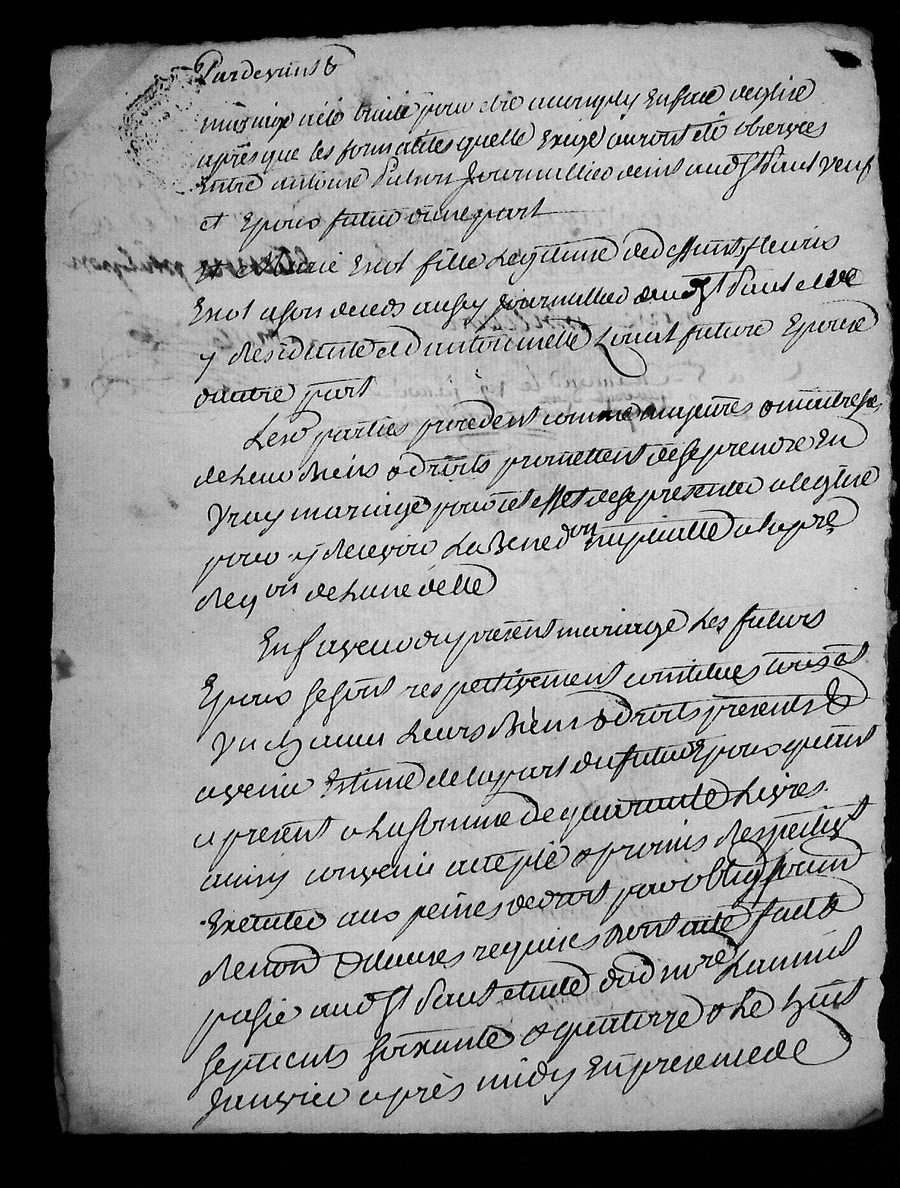 Pardevant &
mariage a été traité pour être accomply En face deglise
apres que les formalites quelle Exige auront été observées
Entre antoine journallier audt St Paul veuf
et Epoux futur dune part
Et Marie Enot fille Legitime de deffunt fleuris
Enot a son deceds aussy journallier dudt St Paul elle
y residente future Epouse
dautre part
Lesd parties procedent comme majeures & maitresses
de Leurs Biens & droits promettent de se prendre En
vray mariage pour cet effet de se presenter a leglise
pour y recevoir La Bened.on nuptialle a la pre
req.on de Lune delle
En faveur du present mariage Les futurs
Epoux se sont respectivement constitués tous et
Un chacun Leurs Biens & droits presents &
avenir Estimé de la part du futur Epoux quant
a present a La somme de quarante Livres
ainsy convenu accepté & promis Respectivt
Executer aux peines de droit par oblig
renon & clauses requises dont acte fait &
passé audt St Paul etude dud mre Lan mil
septcents soixante & quatorze & Le huit
Janvier après midy En presence de